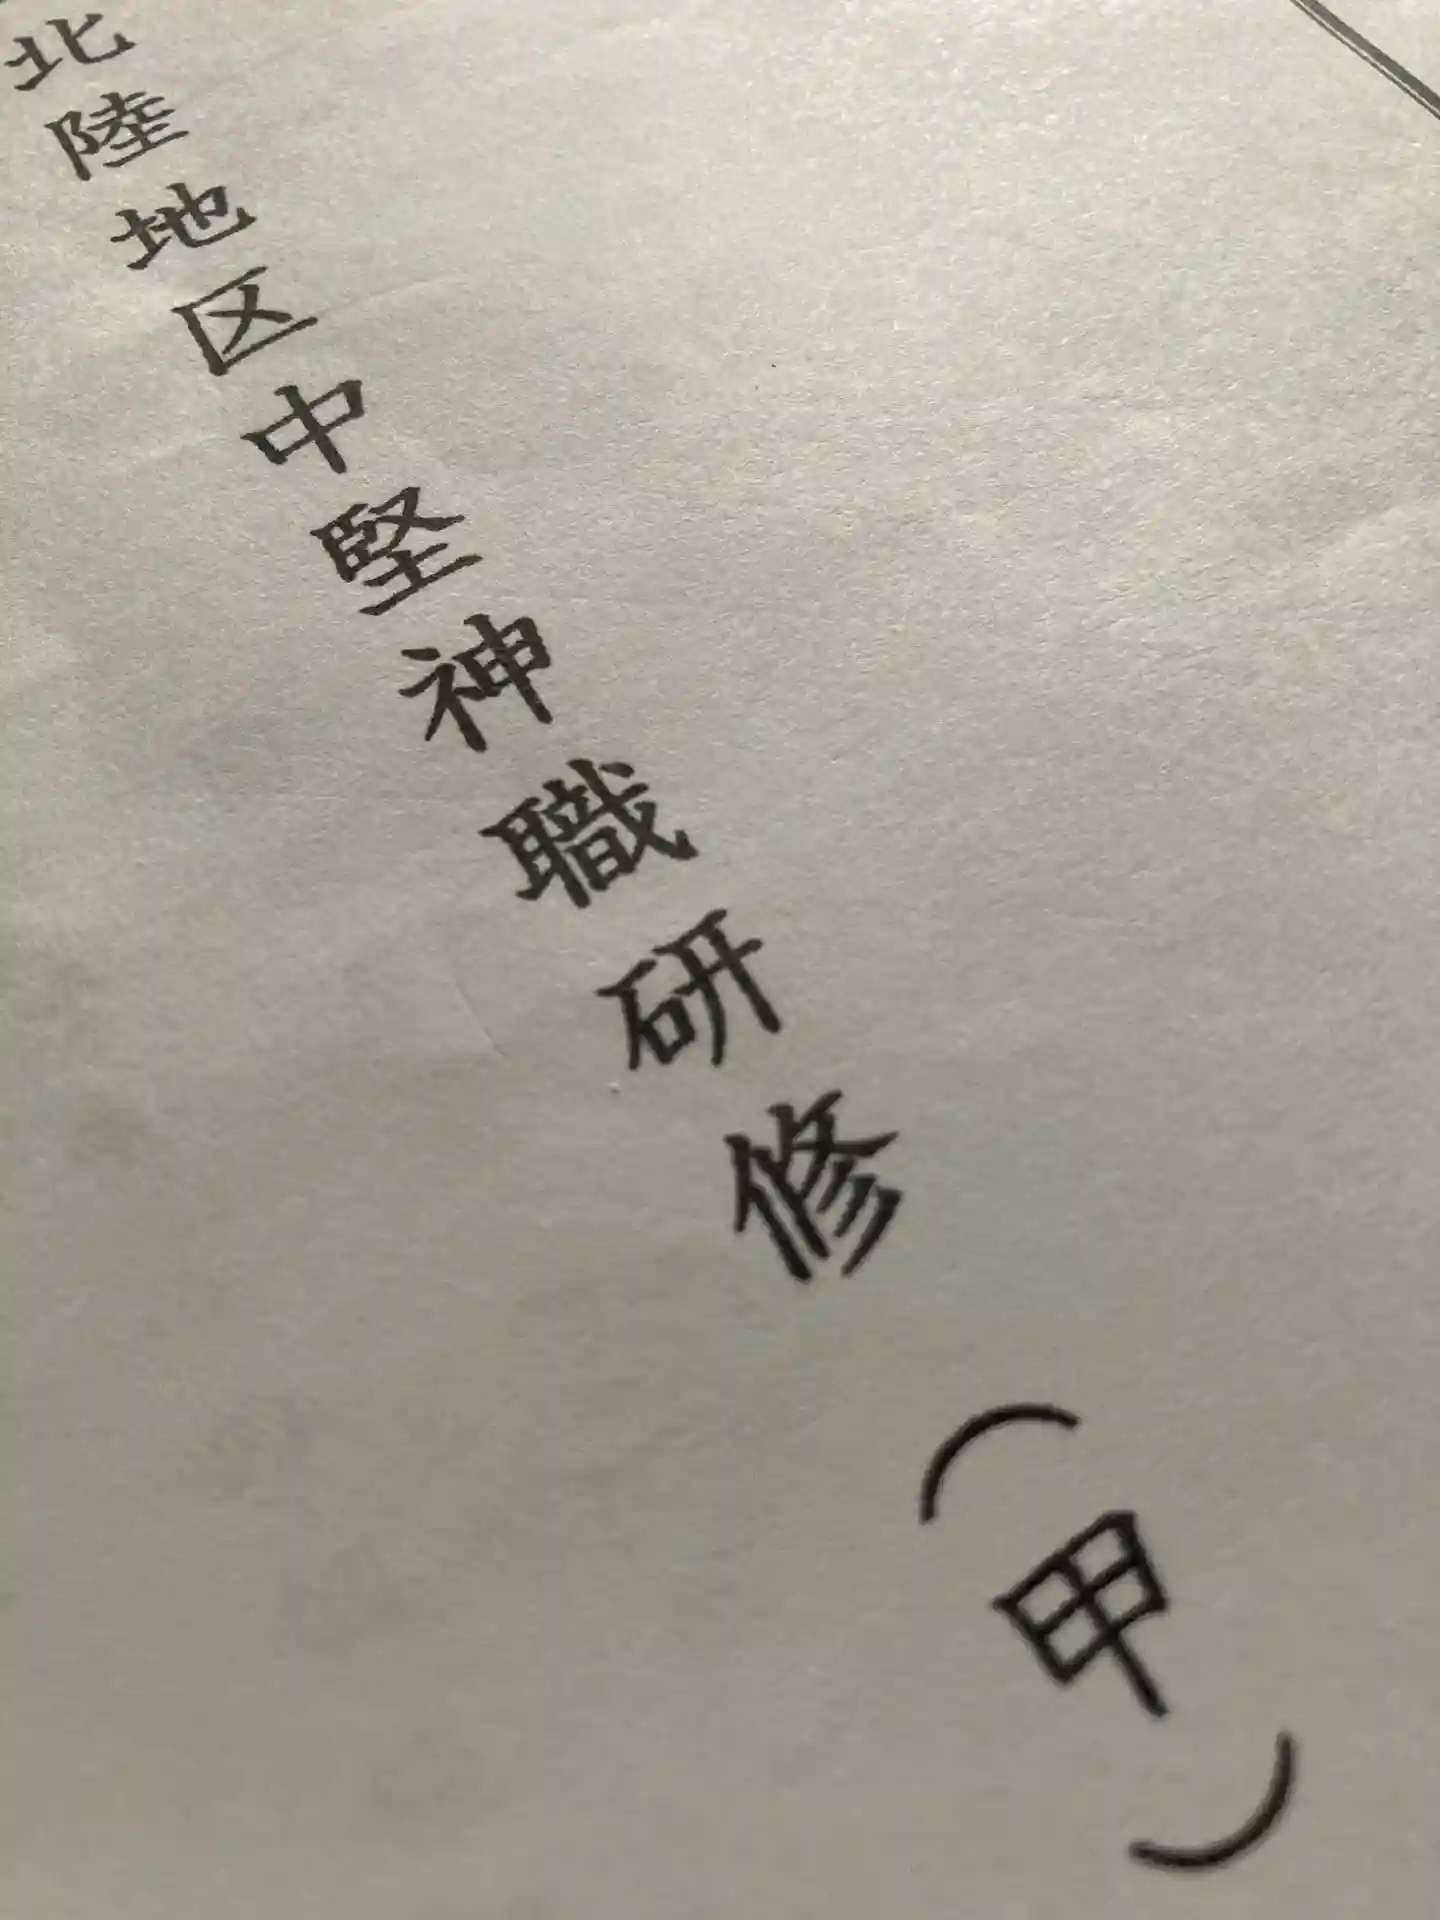 北陸地区中堅神職研修（甲）